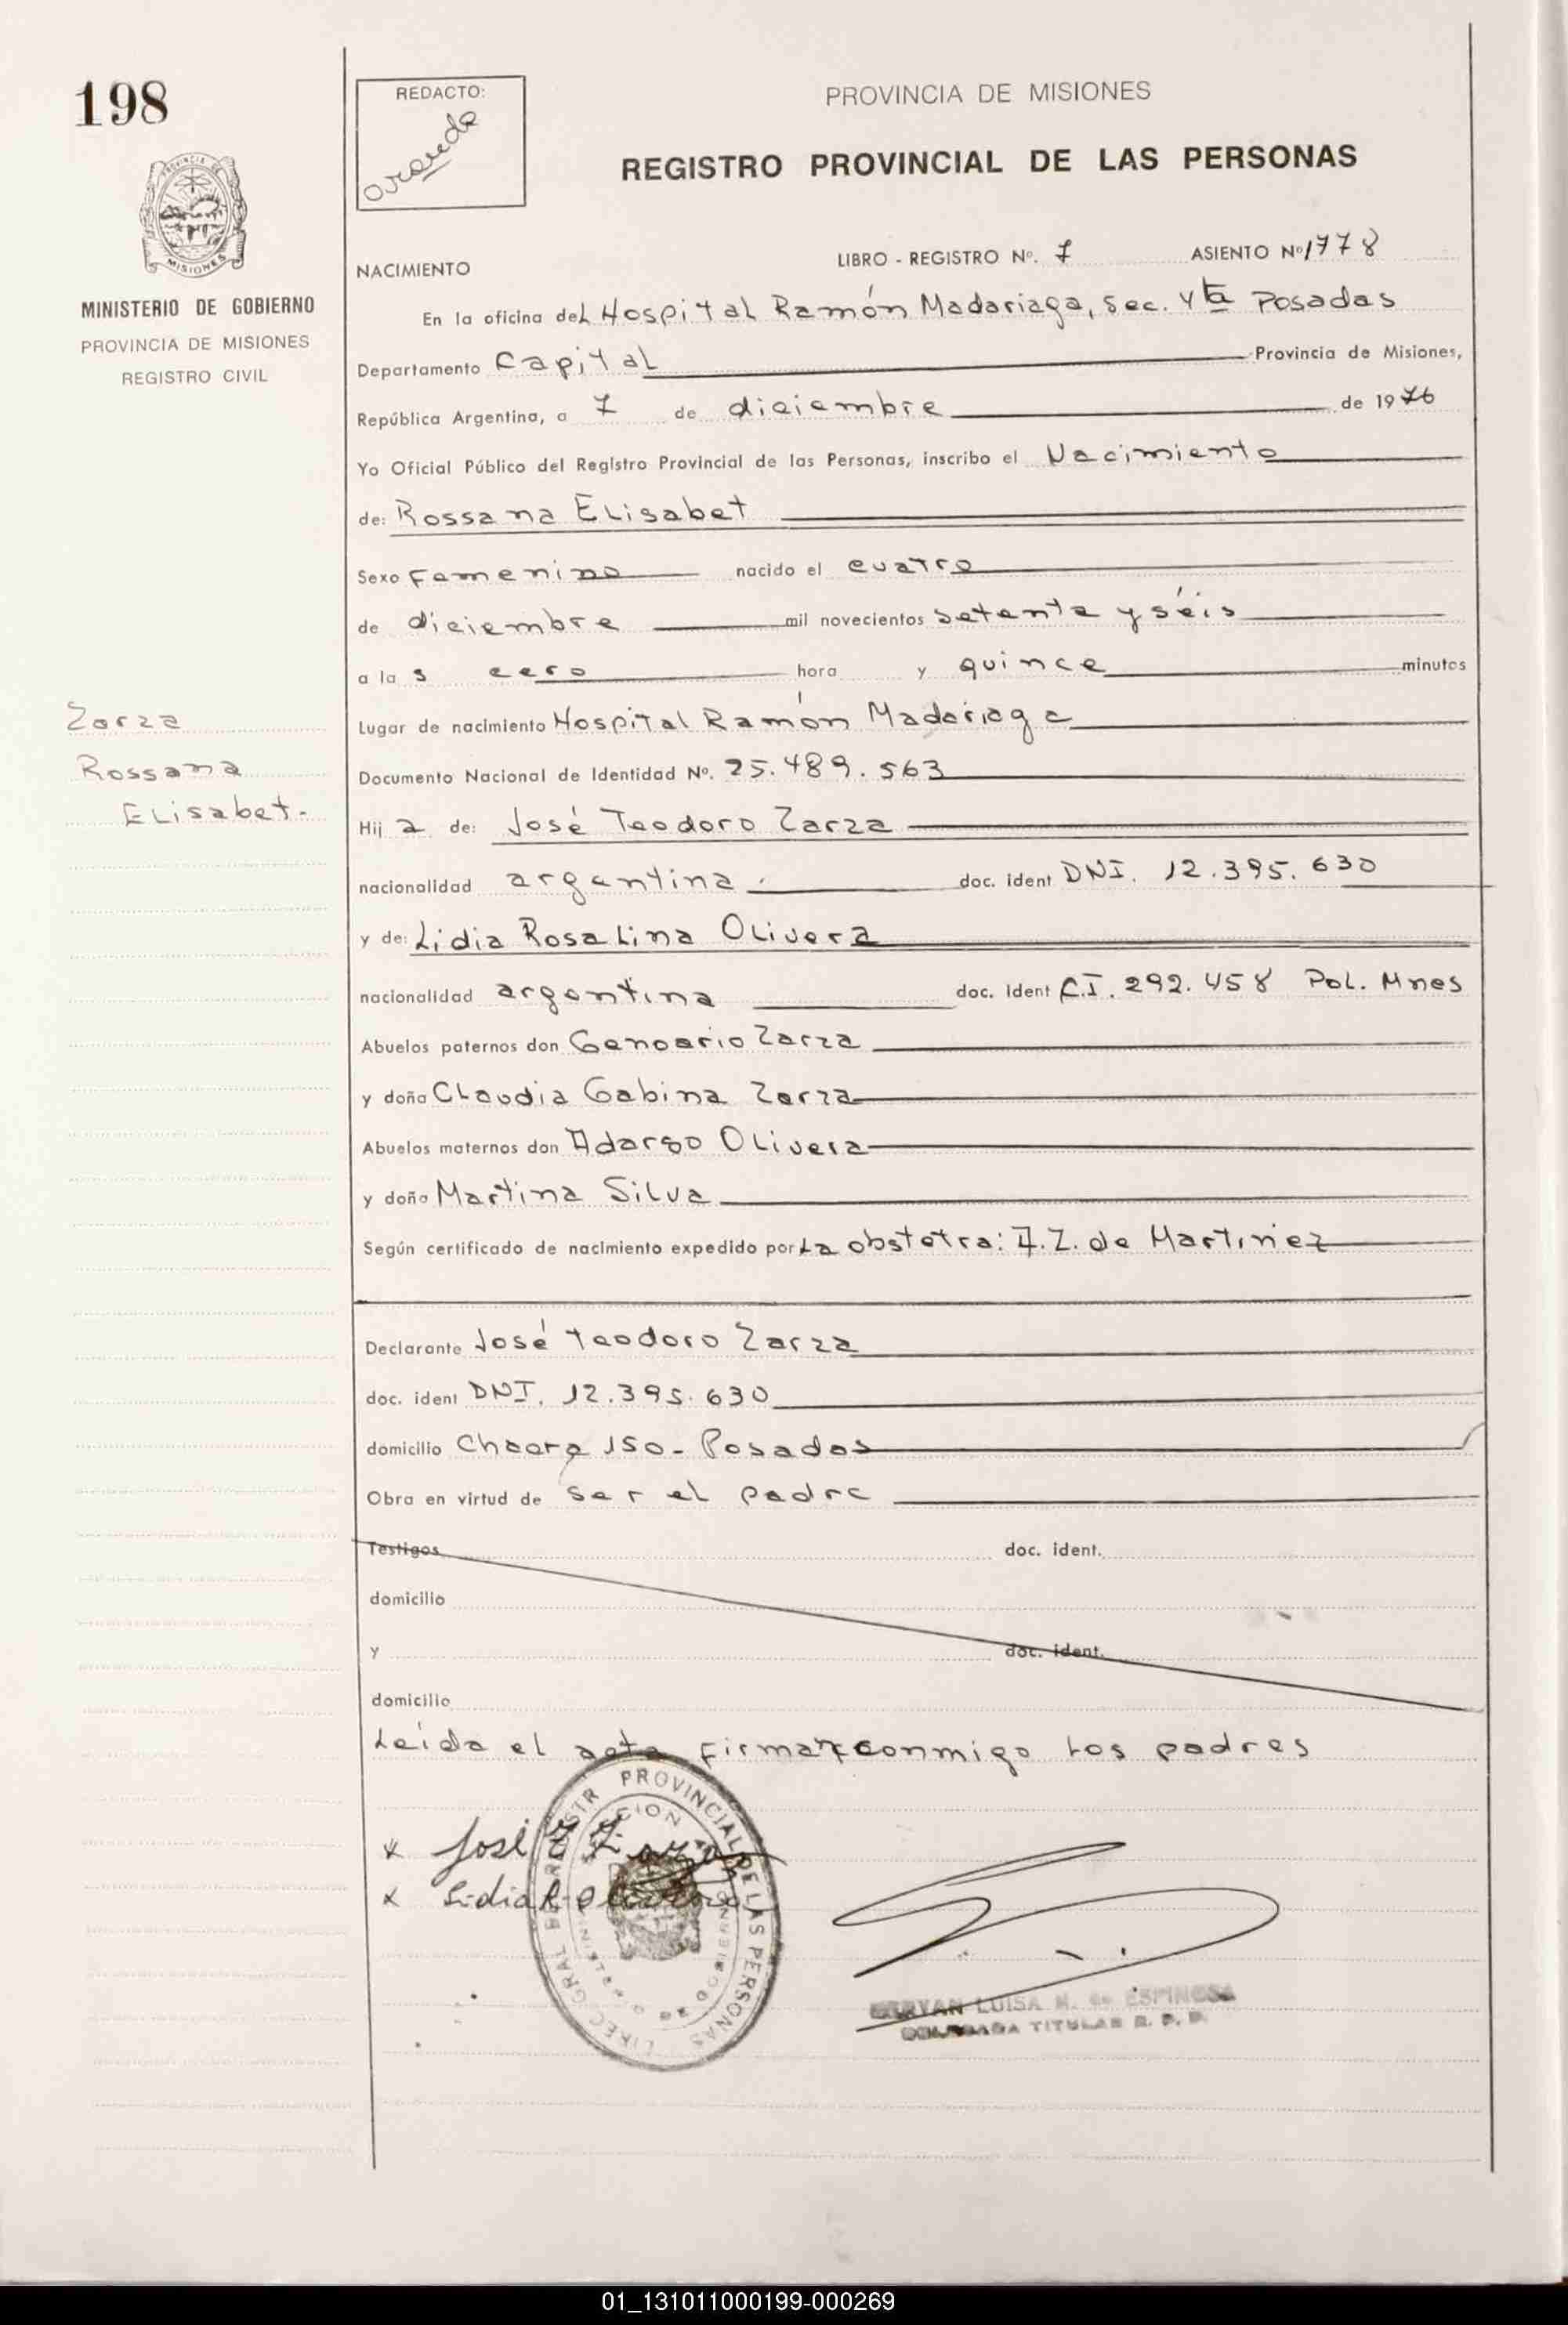 198
REDACTO:
PROVINCIA DE MISIONES
REGISTRO PROVINCIAL DE LAS PERSONAS
MISIONES
MINISTERIO DE GOBIERNO
PROVINCIA DE MISIONES
REGISTRO CIVIL
NACIMIENTO LIBRO - REGISTRO Nº. 7 ASIENTO Nº 1778
En la oficina del Hospital Ramón Madariaga, Sec. 4ta Posadas
Departamento Capital Provincia de Misiones,
República Argentina, a 7 de diciembre de 1976
Yo Oficial Público del Registro Provincial de las Personas, inscribo el Nacimiento
de: Rossana Elisabet
Sexo Femenino nacido el cuatro
de diciembre mil novecientos setenta y séis
a la s cero hora y quince minutos
Lugar de nacimiento Hospital Ramón Madariaga
Zarza
Rossana
Elisabet.
Documento Nacional de Identidad Nº. 25.489.563
Hij a de: José Teodoro Zarza
nacionalidad argentina doc. ident DNI. 12.395.630
y de: Lidia Rosalina Olivera
nacionalidad argentina doc. ident C.I. 292.458 Pol. Mnes
Abuelos paternos don Genoario Zarza
y doña Claudia Gabina Zarza
Abuelos maternos don Adargo Olivera
y doña Martina Silva
Según certificado de nacimiento expedido por La obstetra: I.Z. de Martinez
Declarante José Teodoro Zarza
doc. ident DNI. 12.395.630
domicilio Chacra 150 - Posadas
Obra en virtud de ser el padre
Testigos doc. ident.
domicilio
y doc. ident.
domicilio
Leída el acta firman conmigo los padres
PROVINCIAL DE LAS PERSONAS
José T. Zarza
Lidia R.
LUISA M. de ESPINOSA
TITULAR R. P. P.
01_131011000199-000269